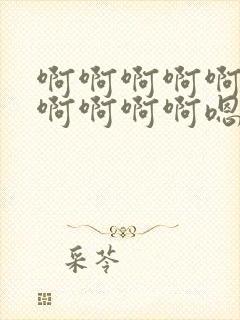 啊啊啊啊啊
啊啊啊啊嗯
采苓